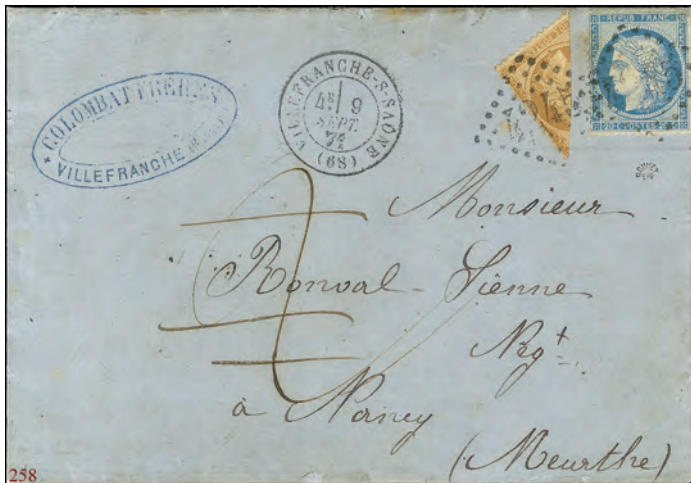 COLOMBAT FRERES
VILLEFRANCHE
VILLEFRANCHE-S-SAÔNE
4E 9
SEPT.
(68)
REPUB. FRANC.
20 C. POSTES
Monsieur
Ronval-Sienne
Negt
à Nancy
(Meurthe)
258